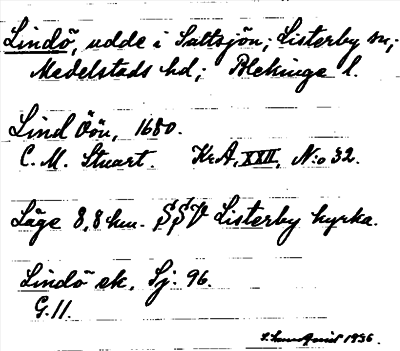 Lindö, udde i Saltsjön; Listerby sn;
Medelstads hd; Blekinge l.
Lind Öön, 1680.
C. M. Stuart. Kr.A, XXII, N:o 32.
Läge 8,8 km. SSV Listerby kyrka.
Lindö ek. Sj. 96.
G. 11.
1936.